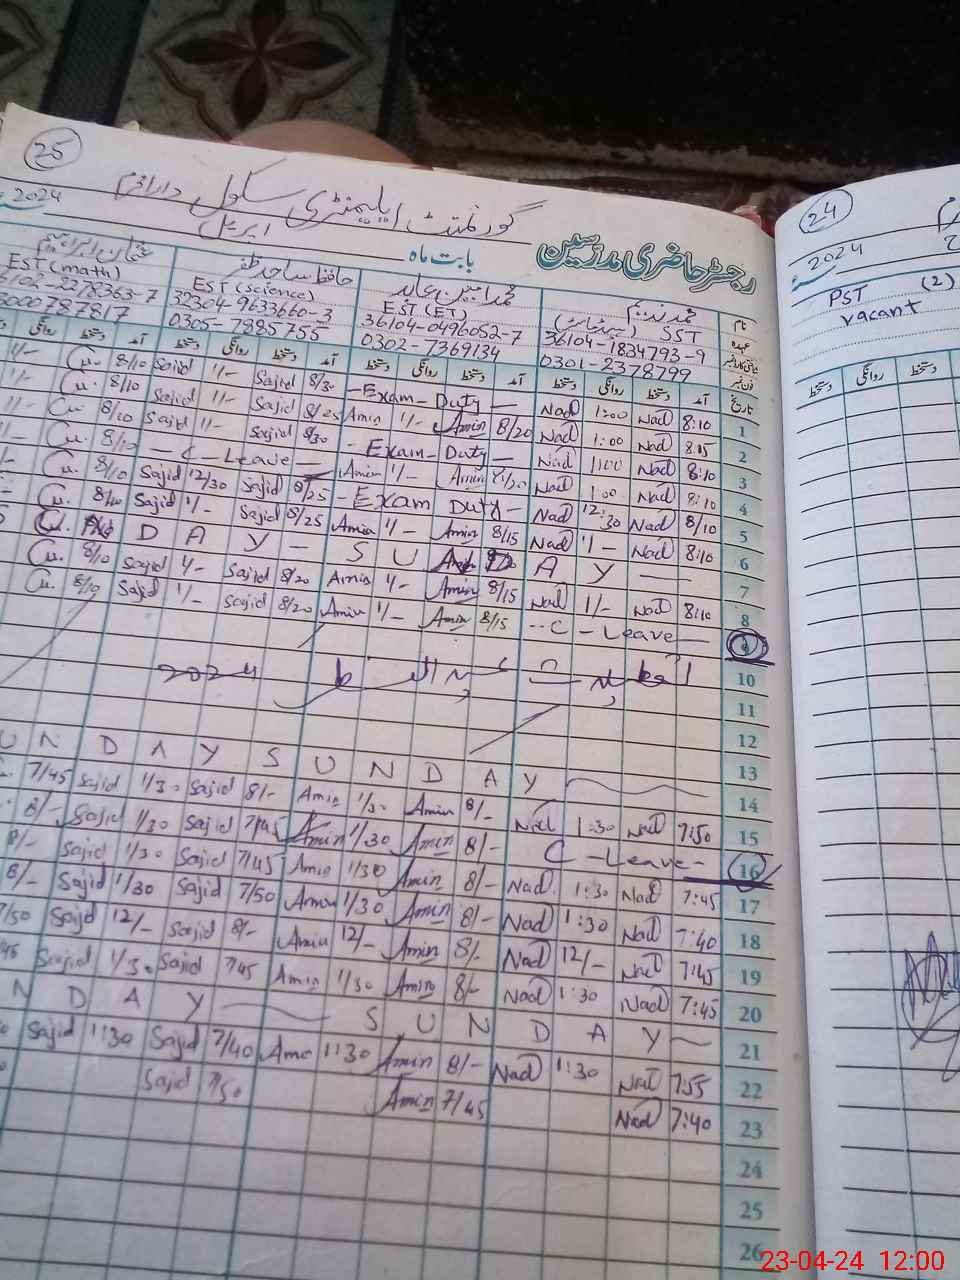 25
گورنمنٹ ایلیمنٹری سکول
2024
اپریل
بابت ماہ
رجسٹر حاضری مدرسین
EST (math)
حافظ ساجد ظفر
EST (science)
محمد امین عابد
EST (ET)
محمد ندیم
SST
نام
عہدہ
6102-2278363-7
32304-9633660-3
36104-0496052-7
36104-1834793-9
0000787817
0305-7885755
0302-7369134
0301-2378799
فون نمبر
روانگی دستخط آمد دستخط روانگی دستخط آمد دستخط روانگی دستخط آمد دستخط روانگی دستخط آمد تاریخ
1/- Cu. 8/10 Sajid 1/- Sajid 8/30 - Exam - Duty - Nad 1:00 Nad 8:10 1
1/- Cu. 8/10 Sajid 1/- Sajid 8/25 Amin 1/- Amin 8/20 Nad 1:00 Nad 8:05 2
11- Cu. 8/10 Sajid 11- Sajid 8/30 - Exam - Duty - Nad 1:00 Nad 8:10 3
Cu. 8/10 - C - Leave - Amin 1/- Amin 8/20 Nad 1:00 Nad 8:10 4
Cu. 8/10 Sajid 12/30 Sajid 8/25 - Exam Duty - Nad 12:30 Nad 8/10 5
Cu. 8/10 Sajid 1/- Sajid 8/25 Amin 1/- Amin 8/15 Nad 1/- Nad 8:10 6
D A Y - S U D A Y 7
Cu. 8/10 Sajid 1/- Sajid 8/20 Amin 1/- Amin 8/15 Nad 1/- Nad 8:10 8
Cu. 8/10 Sajid 1/- Sajid 8/20 Amin 1/- Amin 8/15 - C - Leave - 9
2024 عید الفطر 10
11
12
13
U N D A Y S U N D A Y 14
7/45 Sajid 1/30 Sajid 8/- Amin 1/30 Amin 8/- Nad 1:30 Nad 7:50 15
8/- Sajid 1/30 Sajid 7/45 Amin 1/30 Amin 8/- C - Leave - 16
8/- Sajid 1/30 Sajid 7/45 Amin 1/30 Amin 8/- Nad 1:30 Nad 7:45 17
8/- Sajid 1/30 Sajid 7/50 Amin 1/30 Amin 8/- Nad 1:30 Nad 7:40 18
7/50 Sajid 12/- Sajid 8/- Amin 12/- Amin 8/- Nad 12/- Nad 7:45 19
Sajid 1/30 Sajid 7/45 Amin 1/30 Amin 8/- Nad 1:30 Nad 7:45 20
N D A Y S U N D A Y 21
Sajid 1:30 Sajid 7/40 Amin 1:30 Amin 8/- Nad 1:30 Nad 7:55 22
Sajid 7/50 Amin 7/45 Nad 7:40 23
24
25
26
24
2024
PST (2)
vacant
دستخط روانگی دستخط
23-04-24 12:00